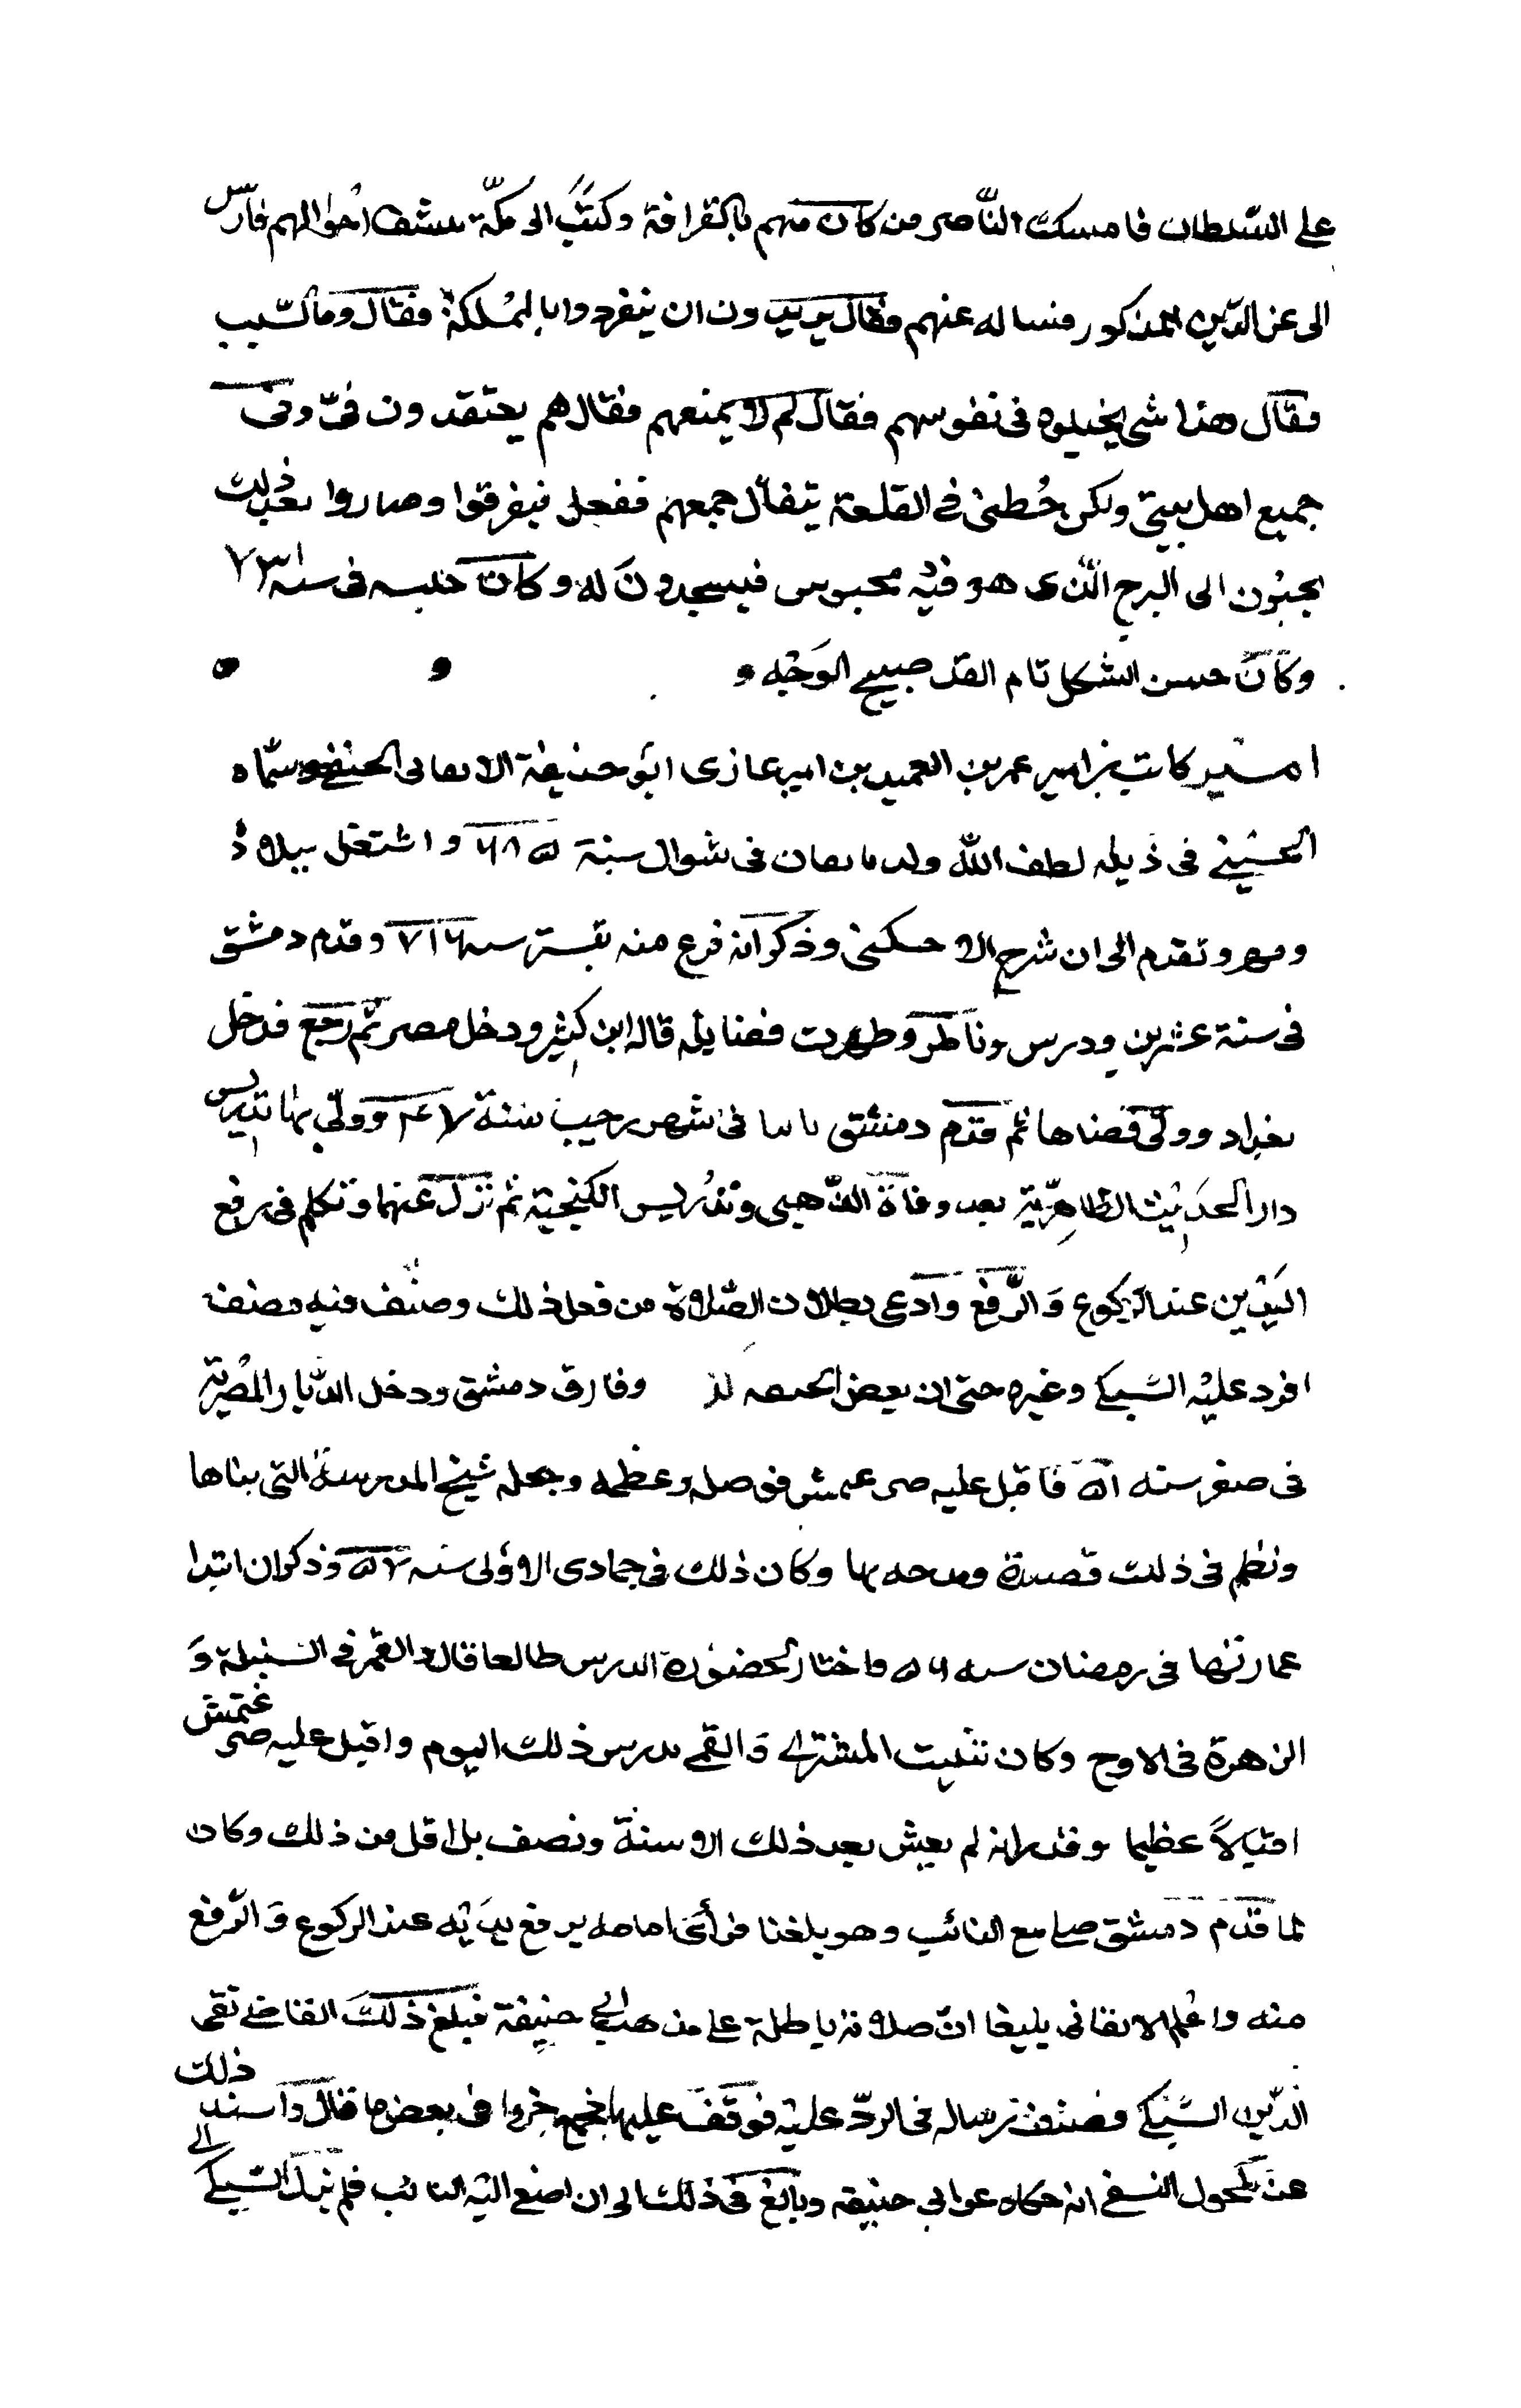 على السّلطان فامسك النّاصر من كان منهم بالقرافة وكتب الى مكّة بكشف احوالهم فارسل
الى عز الدّين المذكور فساله عنهم فقال يريدون ان ينفردوا بالمملكة فقال وما السّبب
فقال هذا شى يخيلوه فى نفوسهم فقال لم لا يمنعهم فقال هم يعتقدون فىّ وفى
جميع اهل بيتى ولكن حُطنى فى القلعة يتفلل جمعهم ففعل فتفرقوا وصاروا بعد ذلك
يجيئون الى البرج الّذى هو فيه محبوس فيسجدون له وكان حبسه فى سنة ٧٣١
وكان حسن الشكل تام القد صبيح الوَجْه
امير كاتب بن امير عمر بن العميد بن امير غازى ابو حنيفة الاتقانى الحنفى وسمّاه
الحسينى فى ذيله لطف الله ولد باتقان فى شوال سنة ٦٨٥ واشتغل ببلاده
ومهر وتقدم الى ان شرح الاخسكتى وذكر انه فرغ منه بتستر سنه ٧١٦ وقدم دمشق
فى سنة عشرين ودرس وناظر وظهرت فضايله قاله ابن كثير ودخل مصر ثم رجع فدخل
بغداد وولّى قضاها ثم قدم دمشق ثانيا فى شهر رجب سنة ٤٧ وولّى بها تدريس
دار الحديث الظاهريّة بعد وفاة الذّهبى وتدريس الكنجية ثم نزل عنهما وتكلم فى رفع
اليدين عند الركوع والرّفع وادعى بطلان الصّلاة من فعل ذلك وصنف فيه مصنف
افرد عليه السبكى وغيره حتى ان بعض وفارق دمشق ودخل الدّيار المصريّة
فى صفر سنه ٥١ فاقبل عليه صرغتمش فوصله وعظمه وجعله شيخ المدرسة التى بناها
ونظم فى ذلك قصيدة ومدحه بها وكان ذلك فى جمادى الاولى سنه ٥٧ وذكر ان ابتدا
عمارتها فى رمضان سنه ٥٦ واختار لحضوره الدرس طالعا قال والقمر فى السنبلة و
الزهرة فى الاوج وكان تثليث المشترى والقمر بدرس ذلك اليوم واقبل عليه صرغتمش
اقبالاً عظيما وقدر انه لم يعش بعد ذلك الا سنة ونصف بل اقل من ذلك وكان
لما قدم دمشق صلى مع النائب وهو يلبغا فرأى امامه يرفع يديه عند الركوع والرّفع
منه واعلم الاتقانى يلبغا انّ صلاته باطلة على مذهب ابى حنيفة فبلغ ذلك القاضى تقى
الدّين السّبكى فصنف رساله فى الردّ عليه فوقف عليها فجمع جزوا فى بعض ما قال واسند ذلك
عن مكحول النسفى انه حكاه عن ابى حنيفه وبالغ فى ذلك الى ان اصغى اليه النائب فلم يزل السّبكى الى